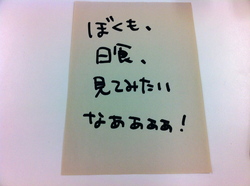 ぼくも、
日食、
見てみたい
なあぁぁぁ!